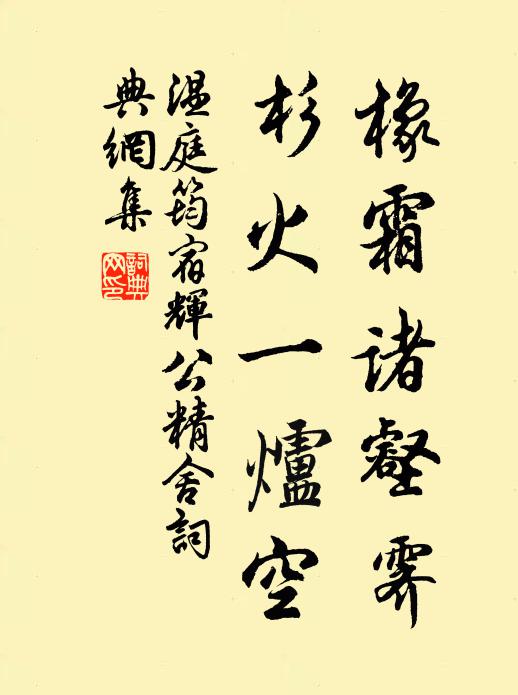 橡霜諸壑霽
杉火一爐空
温庭筠宿輝公精舍詞
典網集
詞典網印